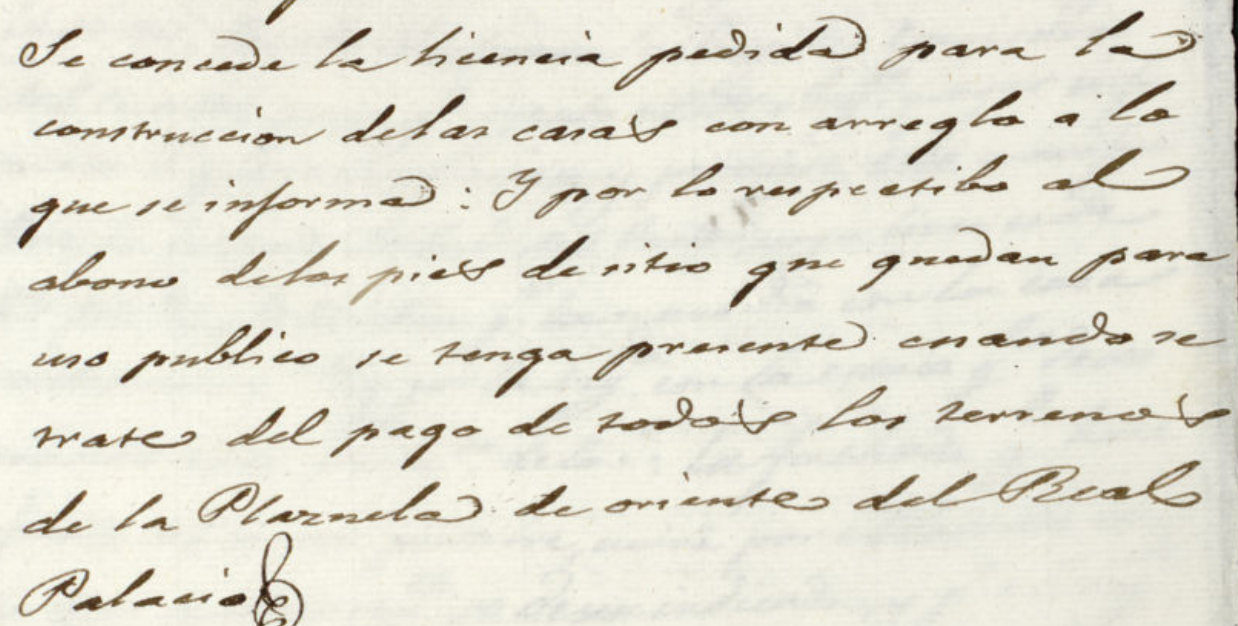 Se concede la licencia pedida para la
construccion delas casas con arreglo a lo
que se informa: Y por lo respectibo al
abono delos pies de sitio que quedan para
uso publico se tenga presente cuando se
trate del pago de todos los terrenos
de la Plazuela de oriente del Real
Palacio